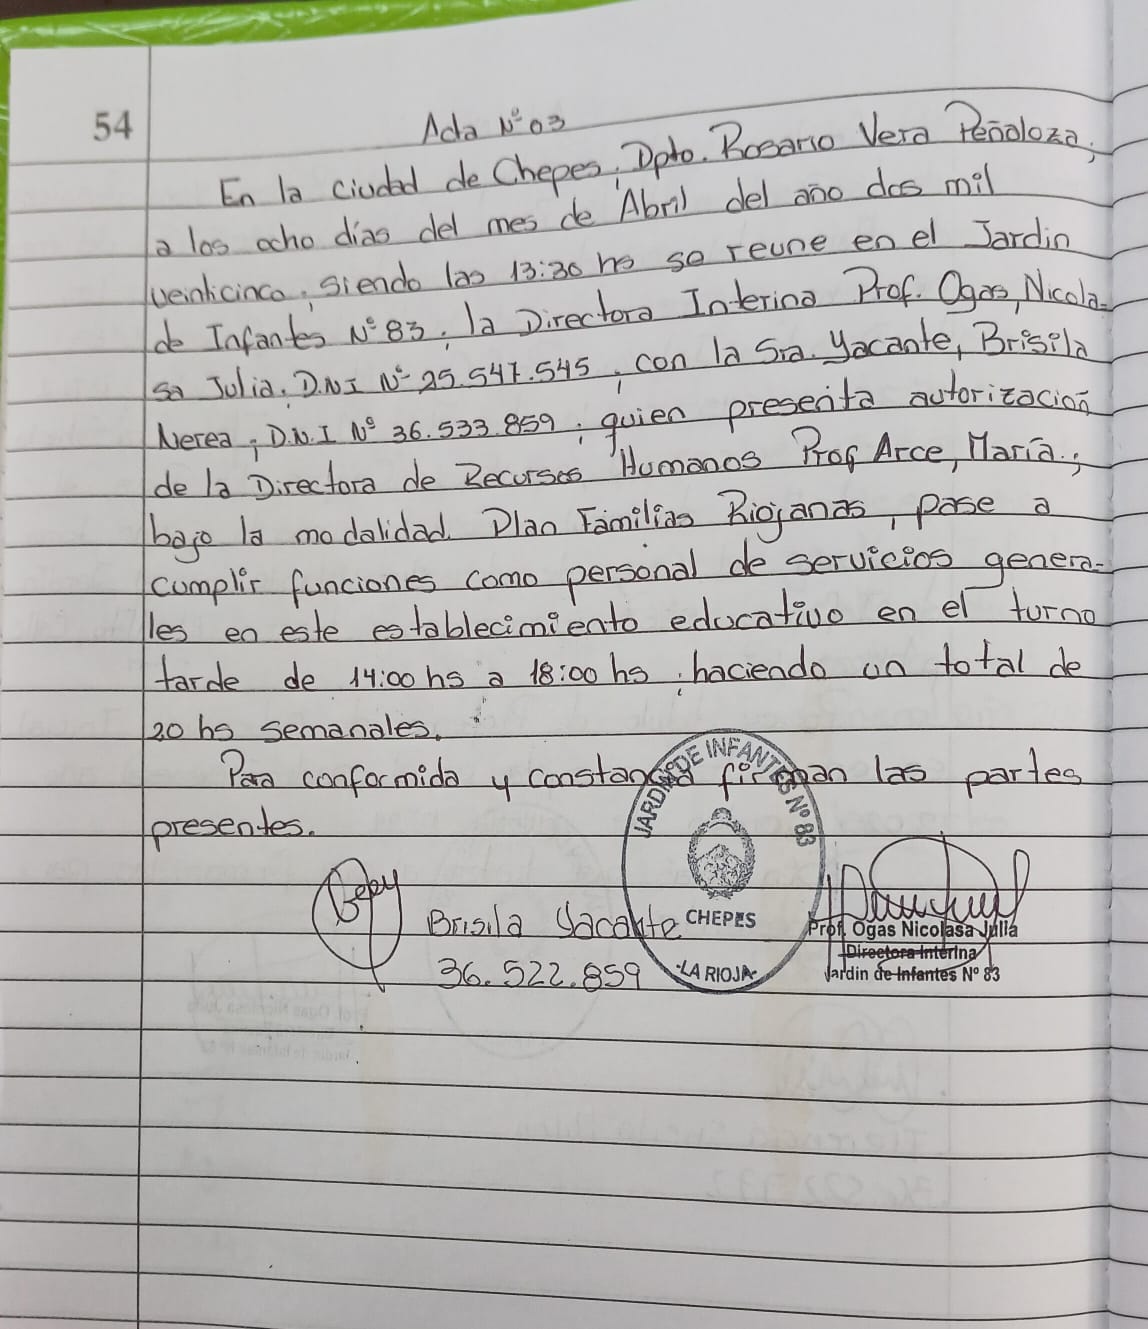 54
Acta Nº 03
En la ciudad de Chepes, Dpto. Rosario Vera Peñaloza,
a los ocho días del mes de Abril del año dos mil
veinticinco, siendo las 13:30 hs se reune en el Jardin
de Infantes Nº 83, la Directora Interina Prof. Ogas, Nicola-
sa Julia. D.N.I Nº 25.547.545, con la Sra. Yacante, Brisila
Nerea, D.N.I Nº 36.533.859, quien presenta autorización
de la Directora de Recursos Humanos Prof Arce, María.,
bajo la modalidad Plan Familias Riojanas, pase a
cumplir funciones como personal de servicios genera-
les en este establecimiento educativo en el turno
tarde de 14:00 hs a 18:00 hs, haciendo un total de
20 hs semanales.
Para conformida y constancia firman las partes
presentes.
JARDIN DE INFANTES Nº 83
CHEPES
-LA RIOJA-
Brisila Yacante
36.522.859
Prof. Ogas Nicolasa Julia
Directora Interina
Jardin de Infantes Nº 83